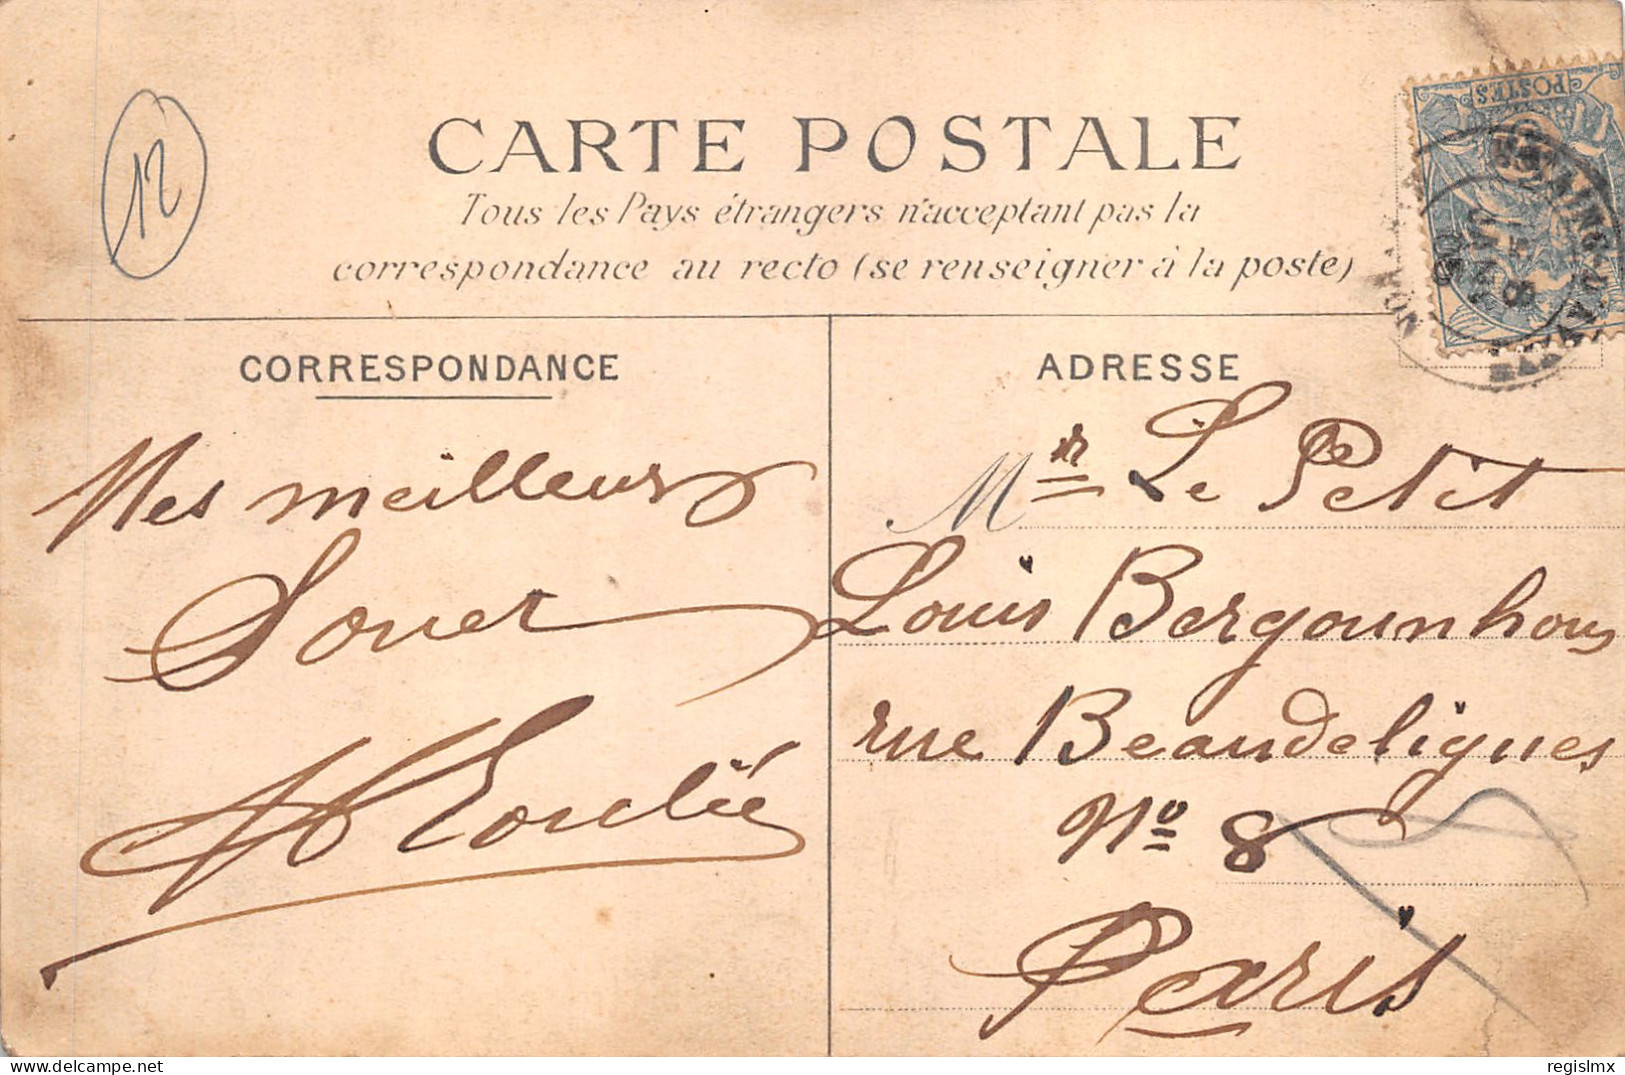 12
CARTE POSTALE
Tous les Pays étrangers n'acceptant pas la
correspondance au recto (se renseigner à la poste)
POSTES
CORRESPONDANCE
Mes meilleurs
H Soulié
ADRESSE
Mr Le Petit
Louis Bergounhous
rue Beaudeligues
No 8
Paris
regislmx